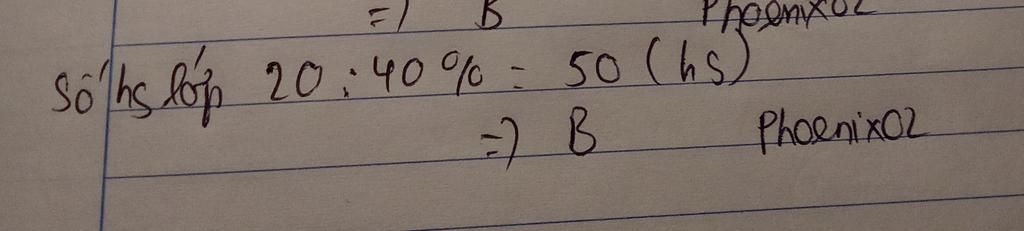 =) B Phoenix02
Số hs lớp 20 : 40% = 50 (hs)
=) B Phoenix02